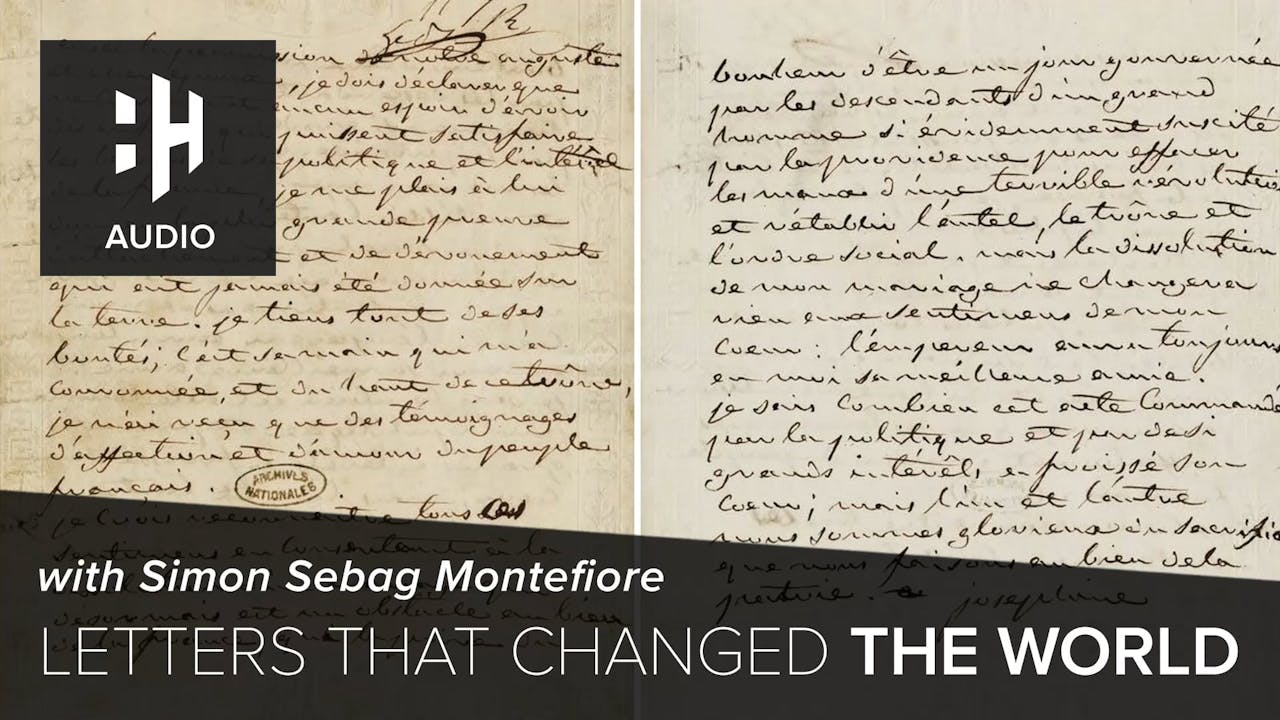 AUDIO
permission de notre auguste
, je dois déclarer que
aucun espoir d'avoir
puissent satisfaire
politique et l'intérêt
je me plais à lui
grande preuve
et de dévouement
qui ait jamais été donnée sur
la terre. je tiens tout de ses
bontés; c'est sa main qui m'a
couronnée, et du haut de ce trône,
je n'ai reçu que des témoignages
d'affection et d'amour du peuple
français.
ARCHIVES
NATIONALES
je crois reconnaitre tous ces
sentimens en consentant à la
désormais est un obstacle au bien
bonheur d'être un jour gouvernée
par les descendants d'un grand
homme si évidemment suscité
par la providence pour effacer
les maux d'une terrible révolution
et rétablir l'autel, le trône et
l'ordre social. mais la dissolution
de mon mariage ne changera
rien aux sentimens de mon
coeur: l'empereur aura toujours
en moi sa meilleure amie.
je sais combien cet acte commandé
par la politique et par de si
grands intérêts, a froissé son
coeur; mais l'un et l'autre
nous sommes glorieux du sacrifice
que nous faisons au bien de la
patrie. joséphine
with Simon Sebag Montefiore
LETTERS THAT CHANGED THE WORLD